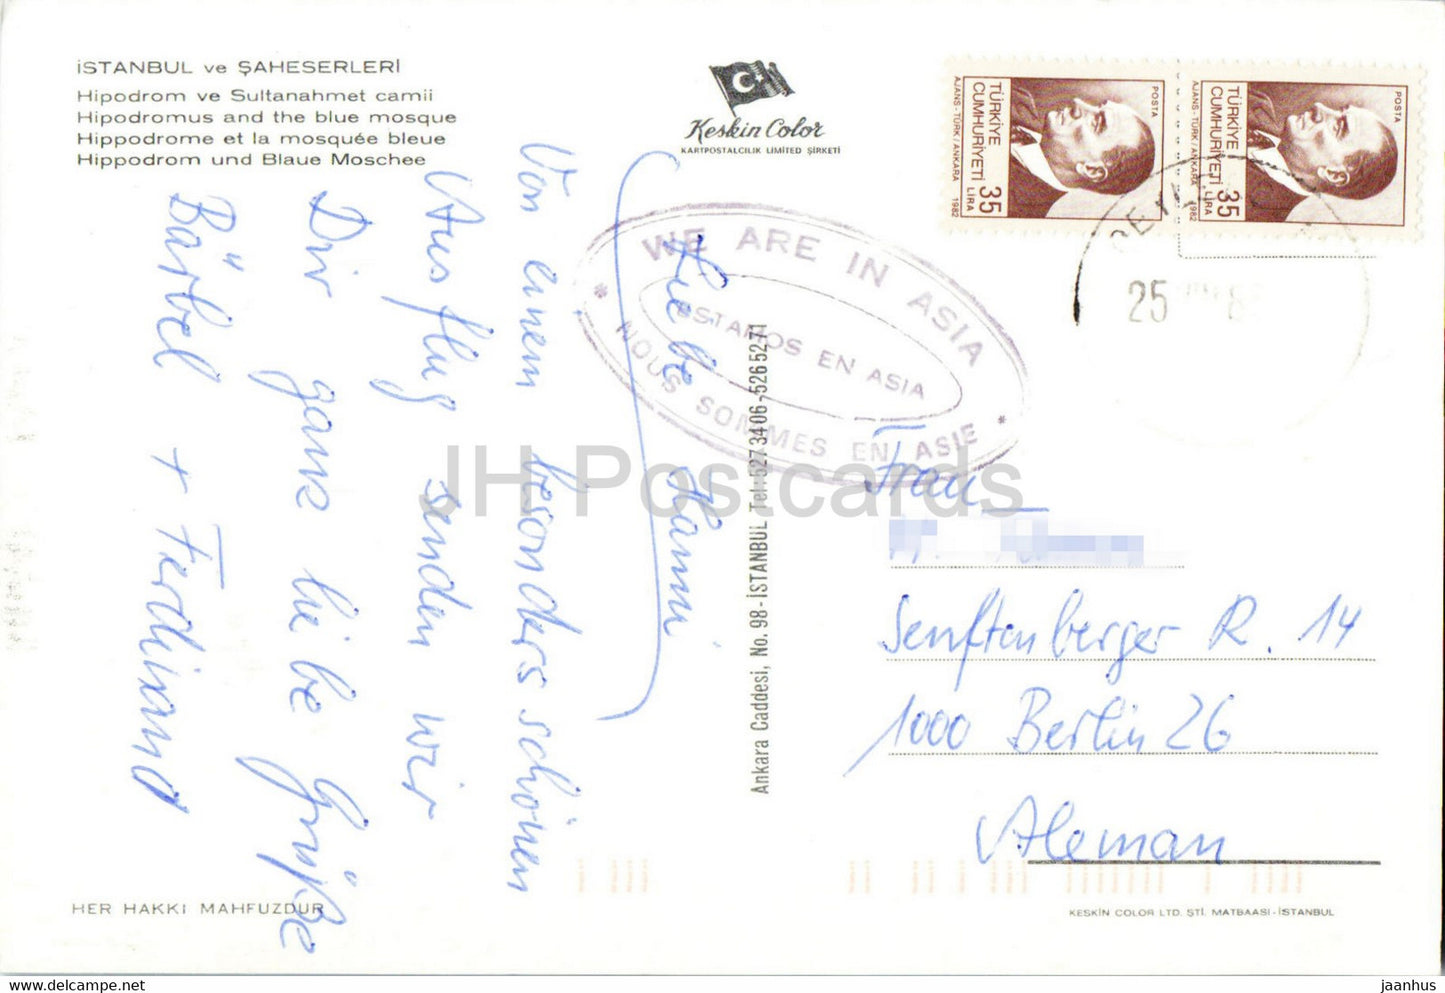 İSTANBUL ve ŞAHESERLERİ
Hipodrom ve Sultanahmet camii
Hipodromus and the blue mosque
Hippodrome et la mosquée bleue
Hippodrom und Blaue Moschee
Keskin Color
KARTPOSTALCILIK LİMİTED ŞİRKETİ
POSTA
TÜRKİYE
CUMHURİYETİ
35
LİRA
AJANS-TÜRK/ANKARA 1982
POSTA
TÜRKİYE
CUMHURİYETİ
35
LİRA
AJANS-TÜRK/ANKARA 1982
25
WE ARE IN ASIA
ESTAMOS EN ASIA
* NOUS SOMMES EN ASIE *
Liebe Hanni
Von einem besonders schönen
Ausflug senden wir
Dir ganz liebe Grüße
Bärbel + Ferdinand
Ankara Caddesi, No. 98-İSTANBUL Tel: 527 34 06-526 52 71
Frau
Senftenberger R. 14
1000 Berlin 26
Aleman
HER HAKKI MAHFUZDUR
KESKİN COLOR LTD. ŞTİ. MATBAASI-İSTANBUL
JH Postcards
www.delcampe.net
jaanhus